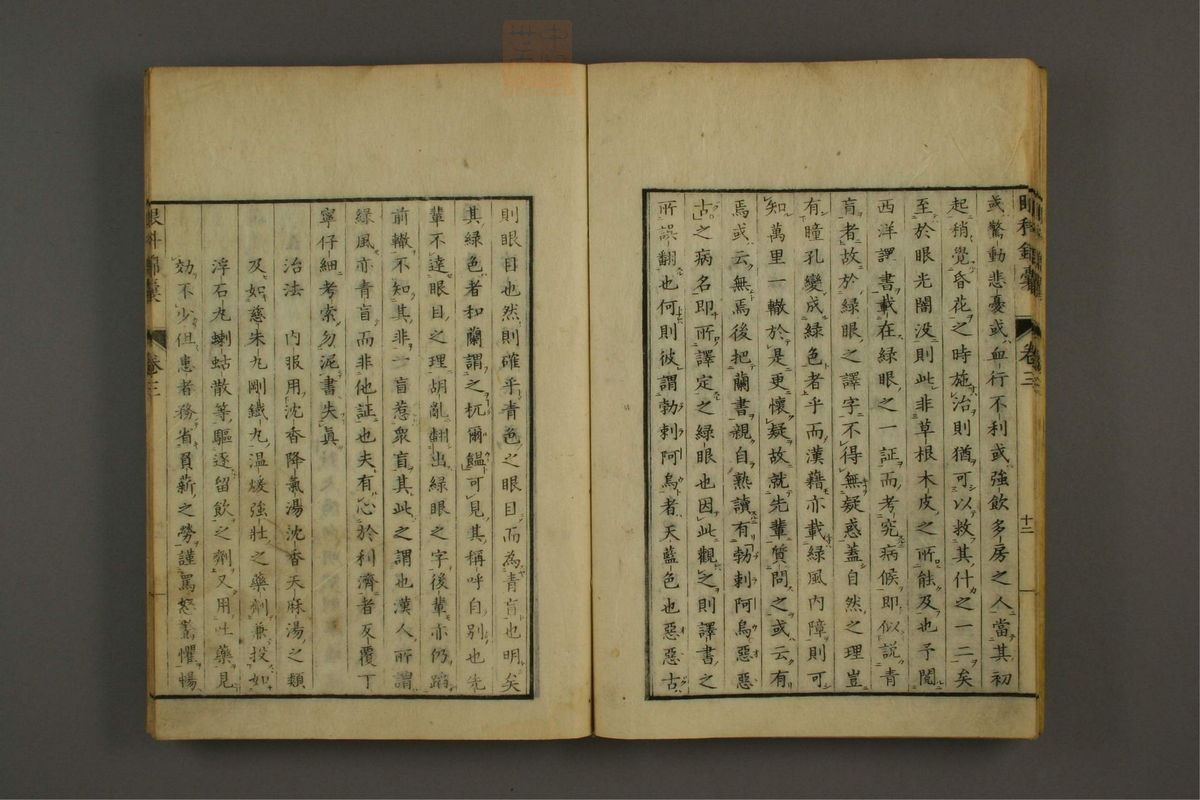 眼科錦嚢 卷三 十二
或驚動悲憂或血行不利或強飲多房之人當其初
起稍覺昏花之時施治則猶可以救其什之一二矣
至於眼光闇没則此非草根木皮之所能及也予閲
西洋譯書載在緑眼之一証而考究病候即似説青
盲者故於緑眼之譯字不得無疑惑蓋自然之理豈
有瞳孔變成緑色者乎而漢藉亦載緑風内障則可
知萬里一轍於是更懷疑故就先輩質問之或云有
焉或云無焉後把蘭書親自熟讀有勃剌阿烏惡惡
古之病名即所譯定之緑眼也因此觀之則譯書之
所誤翻也何則彼謂勃剌阿烏者天藍色也惡惡古
則眼目也然則確乎青色之眼目而為青盲也明矣
其緑色者和蘭謂之杬爾鰮可見其称呼自別也先
輩不達眼目之理胡亂翻出緑眼之字後輩亦仍蹈
前轍不知其非一盲惹衆盲其此之謂也漢人所謂
緑風亦青盲而非他証也夫有心於利濟者反覆丁
寧仔細考索勿泥書失眞
治法 内服用沈香降氣湯沈香天麻湯之類
及如慈朱丸剛鐵丸温煖強壯之藥劑兼投如
浮石丸蝲蛄散等驅逐留飲之劑又用吐藥見
効不少但患者務省負薪之勞謹罵怒驚懼暢
眼科錦嚢 卷三